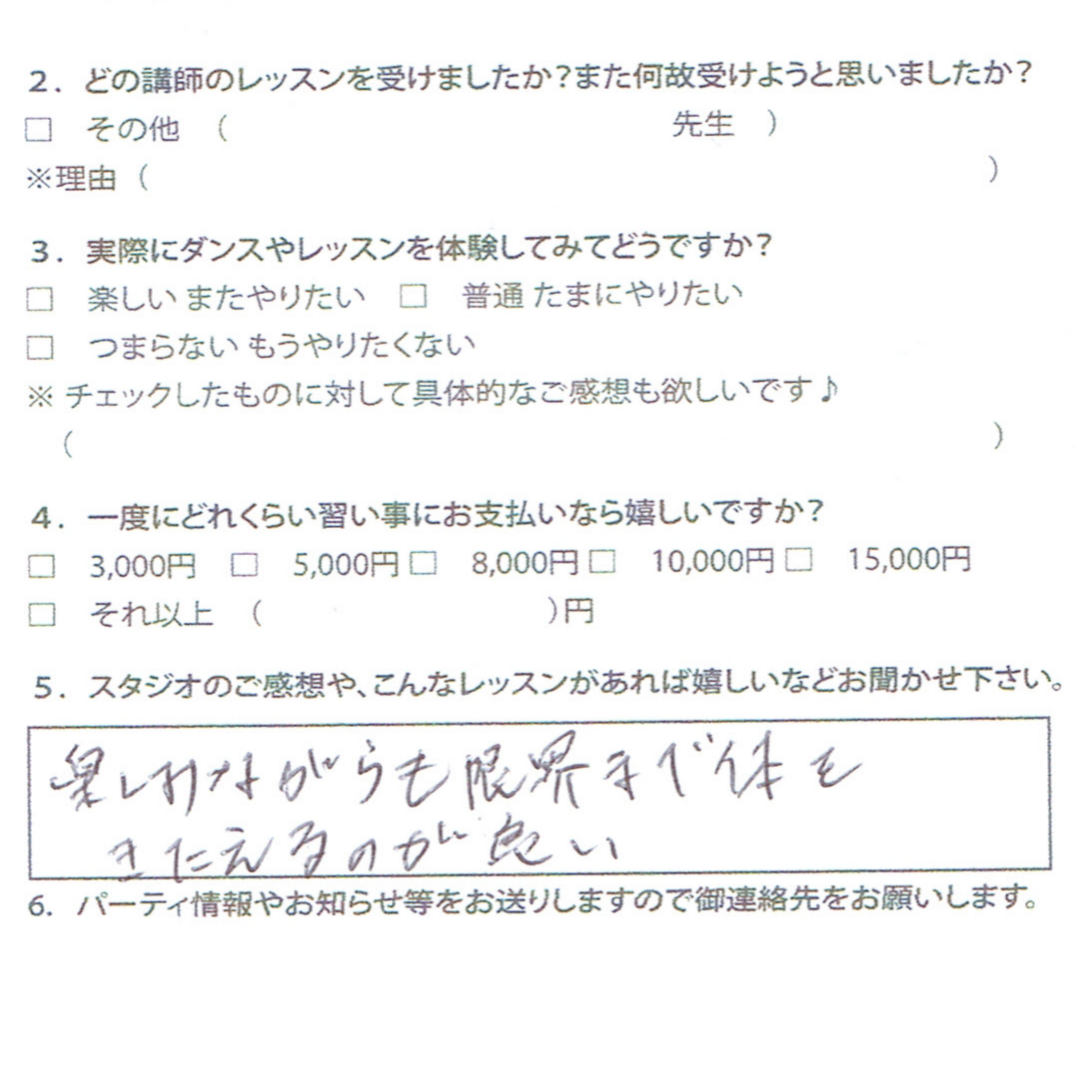 2. どの講師のレッスンを受けましたか?また何故受けようと思いましたか?
□ その他 ( 先生 )
※理由 ( )
3. 実際にダンスやレッスンを体験してみてどうですか?
□ 楽しい またやりたい □ 普通 たまにやりたい
□ つまらない もうやりたくない
※ チェックしたものに対して具体的なご感想も欲しいです♪
( )
4. 一度にどれくらい習い事にお支払いなら嬉しいですか?
□ 3,000円 □ 5,000円 □ 8,000円 □ 10,000円 □ 15,000円
□ それ以上 ( )円
5. スタジオのご感想や、こんなレッスンがあれば嬉しいなどお聞かせ下さい。
楽しみながらも限界まで体を
きたえるのが良い
6. パーティ情報やお知らせ等をお送りしますので御連絡先をお願いします。